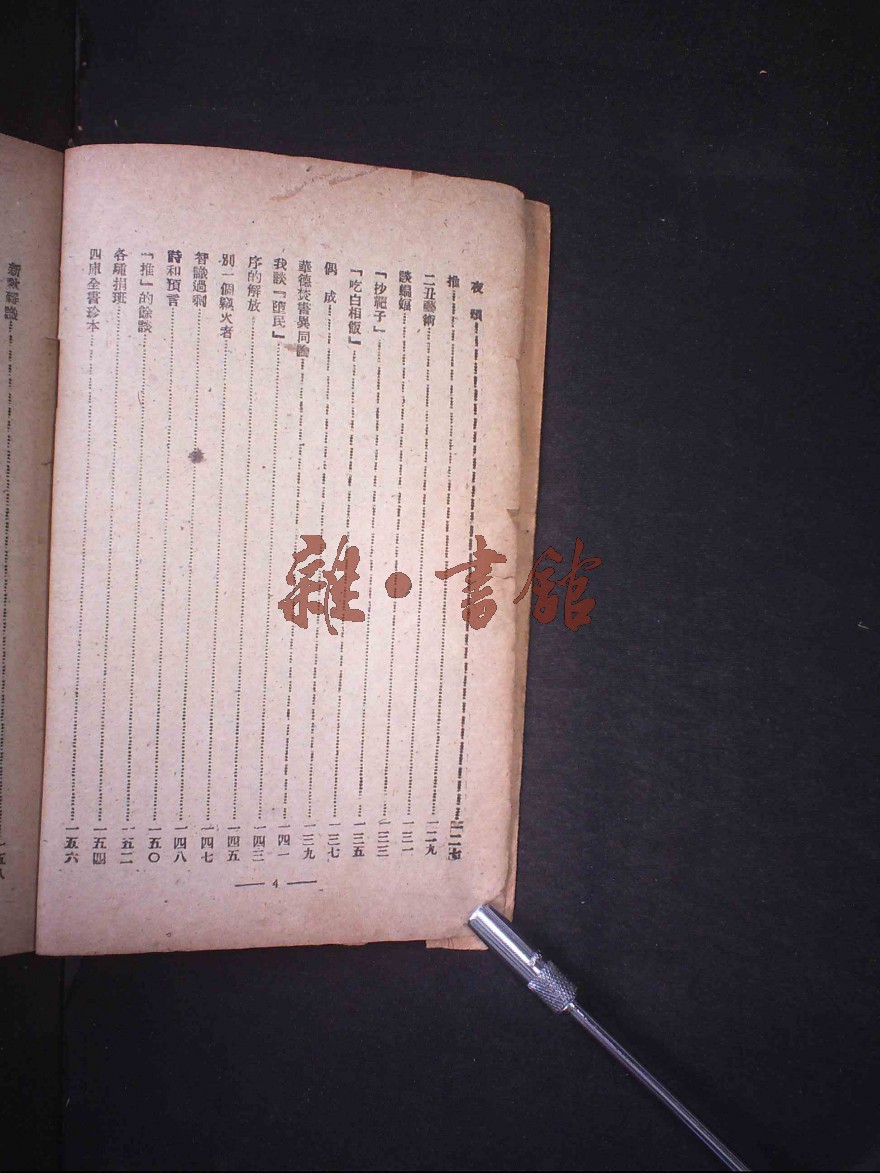 夜頌 一二七
推 一二九
二丑藝術 一三一
談蝙蝠 一三三
「抄靶子」 一三五
「吃白相飯」 一三七
偶成 一三九
華德焚書異同論 一四一
我談「墮民」 一四三
序的解放 一四五
別一個竊火者 一四七
智識過剩 一四八
詩和預言 一五〇
「推」的餘談 一五二
各種捐班 一五四
四庫全書珍本 一五六
4
新秋雜識 一五八
雜·書館